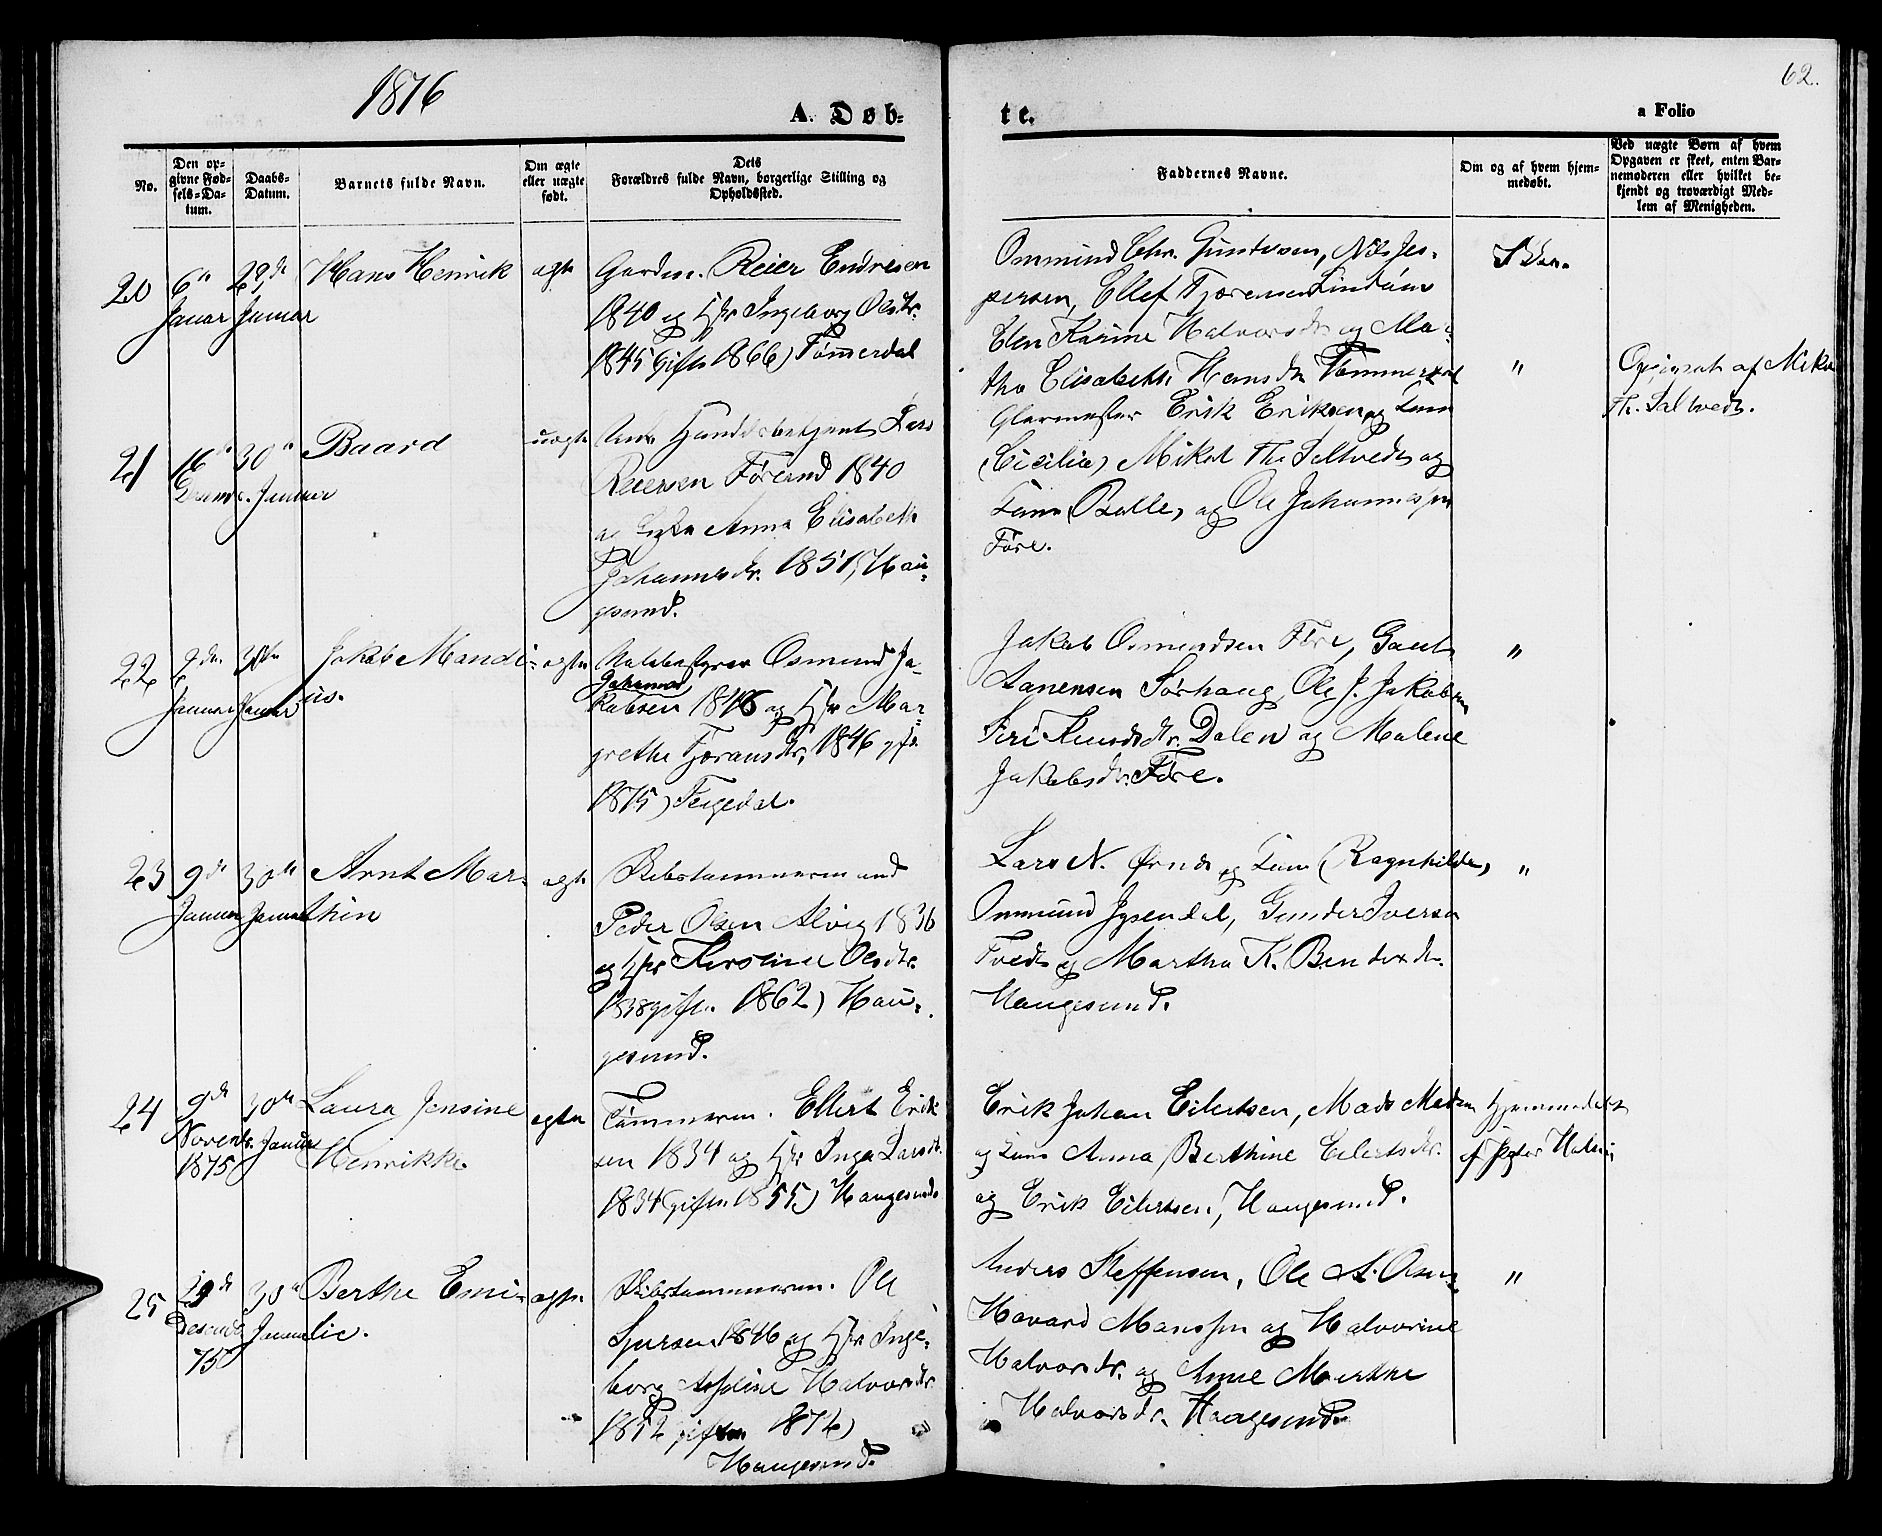 1876
A. Døb=
te.
62.
a Folio
No.
Den op=
givne Fød=
sels=Da=
tum.
Daabs=
Datum.
Barnets fulde Navn.
Om ægte
eller uægte
født.
Dets
Forældres fulde Navn, borgerlige Stilling og
Opholdssted.
Faddernes Navne.
Om og af hvem hjem=
medøbt.
Ved uægte Børn af hvem
Opgaven er skeet, enten Bar=
nemoderen eller hvilket be=
kjendt og troværdigt Med=
lem af Menigheden.
20
6te
Januar
29de
Januar
Hans Henrik
ægte
Gardm. Reier Endresen
1840 og Hstr Ingeborg Olsdtr.
1845 gifte 1866) Tømmerdal
Ommund Chr. Guntvsen, Nils Jes=
persen, Ellef Lindøen
Elen Karine Halvorsdtr og Ma=
tha Elisabeth Hansdtr Tømmerdal
21
16
30te
Januar
Baard
uægte
Unk Handelsbetjent Lars
Reiersen Førend 1840
og Anna Elisabeth
Johannesdr. 1851, Hau=
gesund.
Glarmester Erik Eriksen og Kone
(Cicilia) Mikal Th. Saltvedt og
Kone (Balle, og Ole Johannessen
Føre.
"
Opgivet af Mikal
Th. Saltvedt.
22
2den
Januar
30te
Januar
Jakob Mandi=
us.
ægte
Osmund Ja=
Johannes
kobsen 1846 og Hstr Mar=
grethe Tjøransdtr, 1846 gft.
1875)
Jakob Osmundsen Føre, Gaut
Aanensen Sørhaug, Ole J. Jakobsen
Siri Knudsdtr. Dalen og Malene
Jakobsdtr. Føre.
"
23
9de
Januar
30te
Januar
Arnt Mar=
thin
ægte
Skibstømmermand
Peder Olsen Alvig 1836
og Hstr Kirstine Olsdtr.
1838 gifte. 1862) Hau=
gesund.
Lars N. Ørnds og Kone (Ragnhilda)
Ommund Jysendal, Gunder Iversen
Tvedt og Martha K. Bendixdtr.
Haugesund.
"
24
9de
Novembr.
1875
30te
Januar
Laura Jensine
Henrikke.
ægte
Tømmerm. Ellert Erik=
sen 1834 og Hstr Inga Larsdtr.
1834 gifte 1855) Haugesund
Erik Johan Eilertsen, Mads Madsen
og Kone Anna Berthine Eilertsdtr.
og Erik Eilertsen, Haugesund.
Hjemmedøbt
af Peter
25
29de
Decemb.
75
30te
Januar
Berthe Emi=
lie.
ægte
Skibstømmerm. Ole
1846 og Hstr Inge=
borg Halvorsdtr.
1852 gifte
Haugesund.
Anders Steffensen, Ole A. Olsen,
Havard Monssen og Halvorine
Halvorsdtr. og Anne Marthe
Halvorsdtr. Haugesund.
"